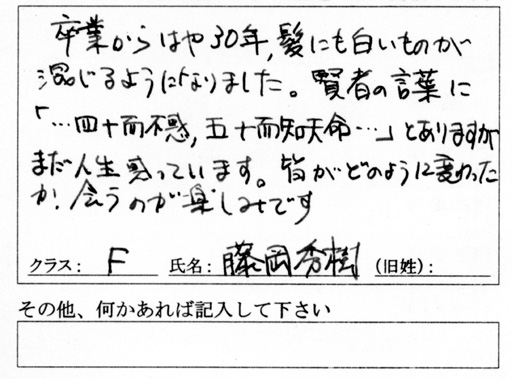 卒業からはや30年,髪にも白いものが
混じるようになりました。賢者の言葉に
「…四十而不惑,五十而知天命…」とありますが
まだ人生惑っています。皆がどのように変わった
か、会うのが楽しみです
クラス: F 氏名: 藤岡秀樹 (旧姓):
その他、何かあれば記入して下さい